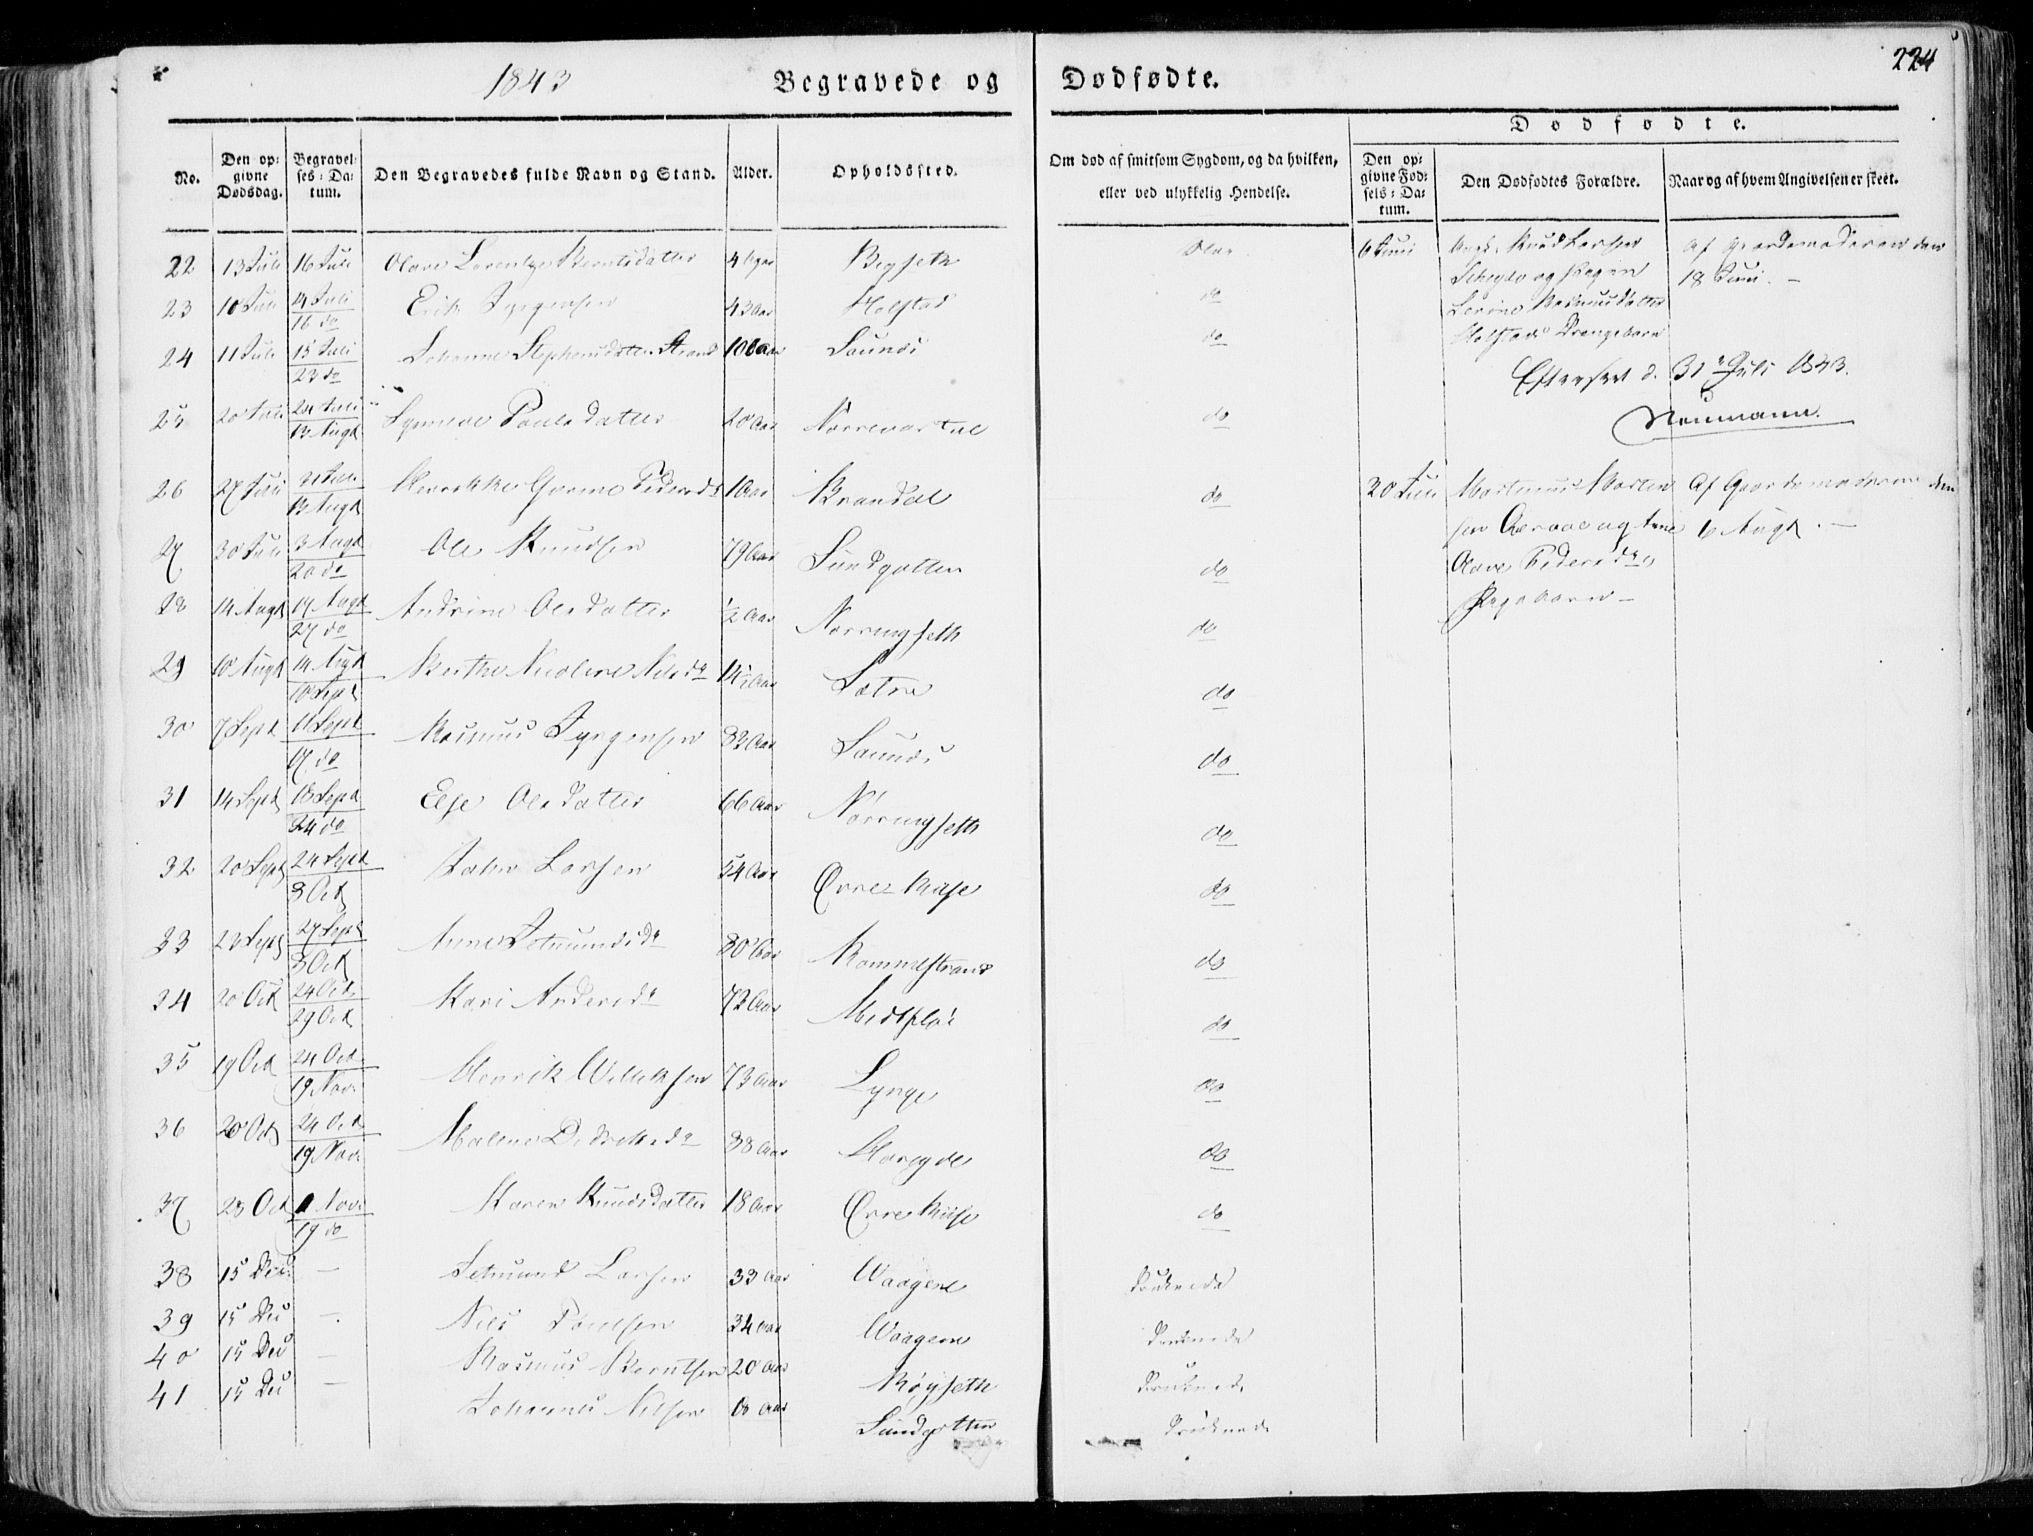 1843
Begravede og
Dødfødte.
224
Dødfødte.
No.
Den opgivne Dødsdag.
Begravelses-Datum.
Den Begravedes fulde Navn og Stand.
Alder.
Opholdssted.
Om død af smitsom Sygdom, og da hvilken, eller ved ulykkelig Hendelse.
Den opgivne Fødsels-Datum.
Den Dødfødtes Forældre.
Naar og af hvem Angivelsen er skeet.
22 13 Juli 16 Juli Olave Lorentze Berntsdatter
23 10 Juli 14 Juli 16 do Erik Jørgensen 43 Aar Holstad do
24 11 Juli 15 Juli 23 do Johanne Stephensdatter Strand Saunes do
25 20 Juli 24 Juli 13 Augt Synneve Poulsdatter 20 Aar Nørrevartdal do
26 27 Juli 31 Juli 13 Augt Pedersdr 1 Aar Brandal do
27 30 Juli 3 Augt 20 do Ole Knudsen 79 Aar Sundgotten do
28 14 Augt 19 Augt 27 do Andrine Olsdatter ½ Aar Nørringseth do
29 10 Augt 14 Augt 10 Sept Berthe Nicoline Nilsdr 14½ Aar Sætre do
30 7 Sept 11 Sept 17 do Rasmus Jørgensen 83 Aar Saunes do
31 14 Sept 18 Sept 24 do Else Olsdatter 66 Aar Nørringseth do
32 20 Sept 24 Sept 8 Oct Peder Larsen 54 Aar Øvre Riise do
33 23 Sept 27 Sept 8 Oct Anne Jetmundsdr 80 Aar Rommelstrand do
34 20 Oct 24 Oct 29 Oct Kari Andersdr 72 Aar Midtfløi do
35 19 Oct 24 Oct 19 Nov. Henrik Willehsen 73 Aar Lynge do
36 20 Oct 24 Oct 19 Nov. Malene Didriksdr 88 Aar Hareyde do
37 28 Oct 1 Nov. 19 do Karen Knudsdatter 18 Aar Øvre Riise do
38 15 Dec. — Jetmund Larsen 33 Aar Waagene Druknede
39 15 Dec — Nils Poulsen 34 Aar Waagene Druknede
40 15 Dec — Rasmus Berntsen 20 Aar Røyseth Druknede
41 15 Dec — Johannes Nilsen Aar Sundgotten Druknede
6 Juni Knud Larsen
og Pigen
Rasmusdatter
Holstad Drengebarn
Af Gjordemoderen den
18 Juni. —
Efterseet d. 31 Juli 1843.
Neumann.
20 Juli Martinus Marten
sen og Ane
Olave Pedersdr
Pigebarn —
Af Gjordemoderen den
6 Augt. —